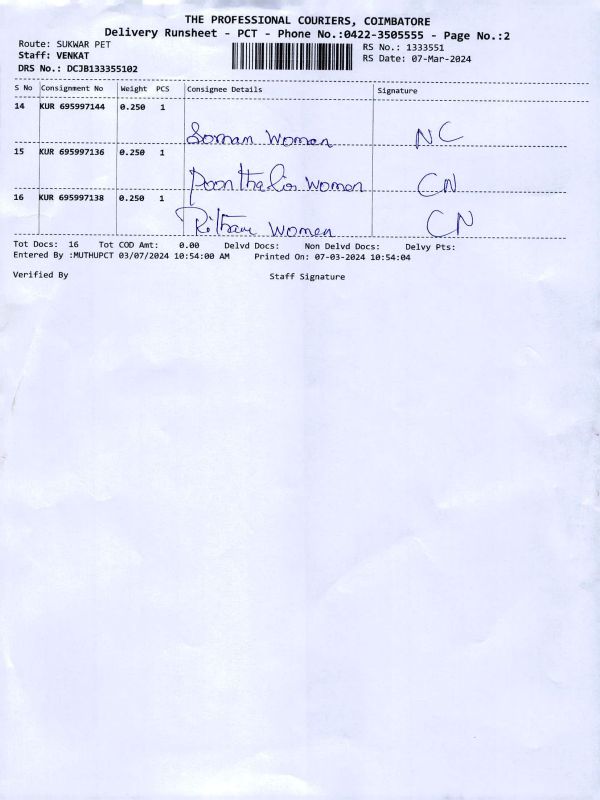 THE PROFESSIONAL COURIERS, COIMBATORE
Delivery Runsheet - PCT - Phone No.:0422-3505555 - Page No.:2
Route: SUKWAR PET RS No.: 1333551
Staff: VENKAT RS Date: 07-Mar-2024
DRS No.: DCJB133355102
S No Consignment No Weight PCS Consignee Details Signature
14 KUR 695997144 0.250 1
Women NC
15 KUR 695997136 0.250 1
Women CN
16 KUR 695997138 0.250 1
Women CN
Tot Docs: 16 Tot COD Amt: 0.00 Delvd Docs: Non Delvd Docs: Delvy Pts:
Entered By :MUTHUPCT 03/07/2024 10:54:00 AM Printed On: 07-03-2024 10:54:04
Verified By Staff Signature